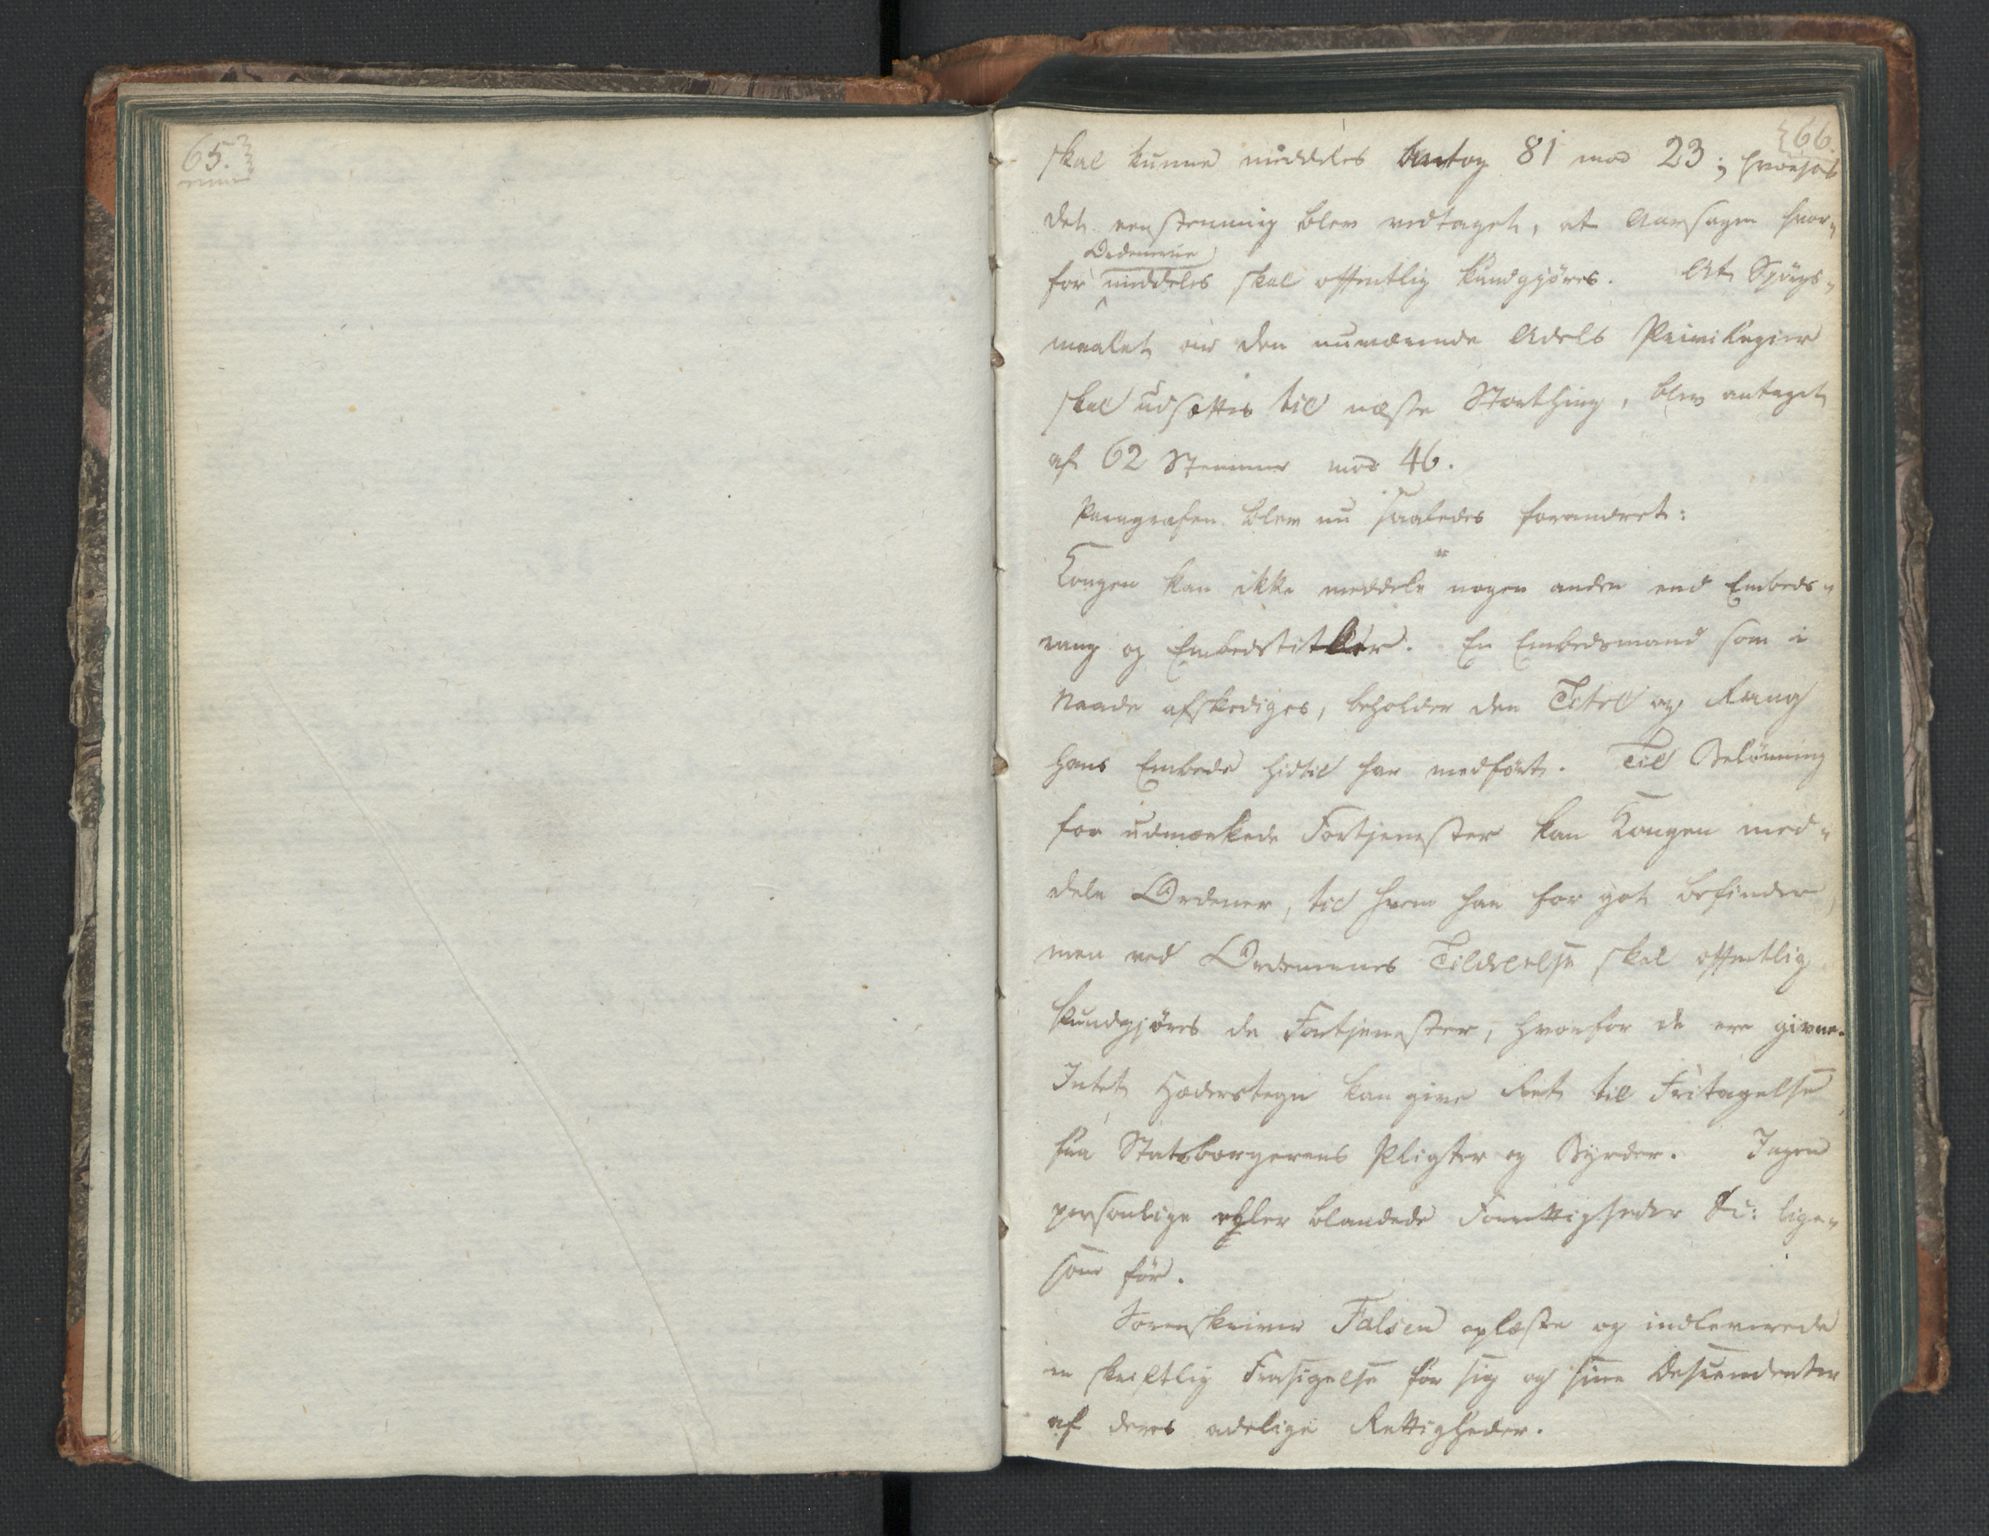 65.
66.
skal kunne meddeles antog 81 mod 23; hvorhos
det eenstemmig blev vedtaget, at Aarsagen hvor-
Ordenerne
for meddeles skal offentlig kundgjøres. At Spörgs-
maalet om den nuværende Adels Privilegier
skal udsættes til næste Storthing, blev antaget
af 62 Stemmer mod 46.
Paragrafen blev nu saaledes forandret:
Kongen kan ikke meddele nogen anden end Embeds-
rang og Embedstitler. En Embedsmand som i
Naade afskediges, beholder den Titel og Rang
hans Embede hidtil har medført. Til Belönning
for udmærkede Fortjenester kan Kongen med-
dele Ordener, til hvem han for got befinder,
men ved Ordenernes Tildelelse skal offentlig
kundgjøres de Fortjenester, hvorfor de ere givne.
Intet Hæderstegn kan give Ret til Fritagelse
fra Statsborgerens Pligter og Byrder. Ingen
personlige eller blandede Forrettigheder &c: lige-
som før.
Sorenskriver Falsen oplæste og indleverede
en skriftlig Frasigelse for sig og sine Descendenter
af deres adelige Rettigheder.